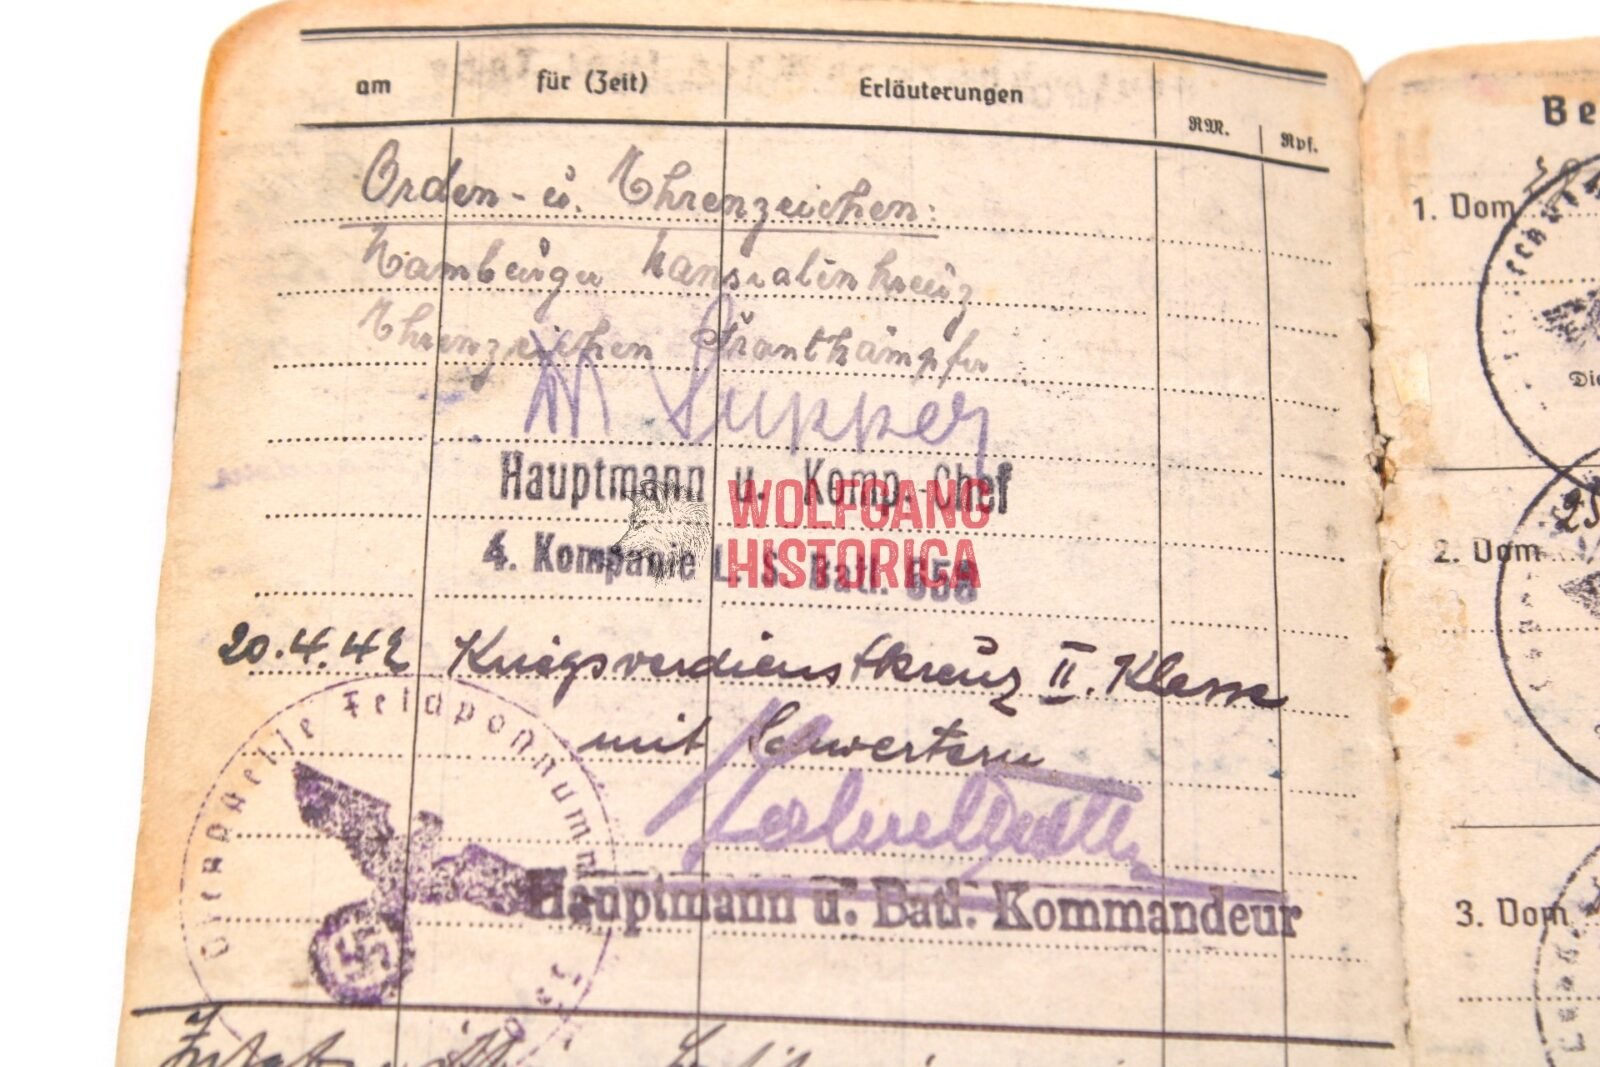 am für (Zeit) Erläuterungen RM. Rpf.
Orden- u. Ehrenzeichen:
Hamburger Hanseatenkreuz
Ehrenzeichen Frontkämpfer
Supper
Hauptmann u. Komp.-Chef
4. Kompanie L. S. Batl. 658
WOLFGANG
HISTORICA
20.4.42 Kriegsverdienstkreuz II. Klasse
mit Schwertern
Hauptmann u. Batl. Kommandeur
Dienststelle Feldpostnummer
Be
1. Vom
Die
2. Vom
25
3. Vom